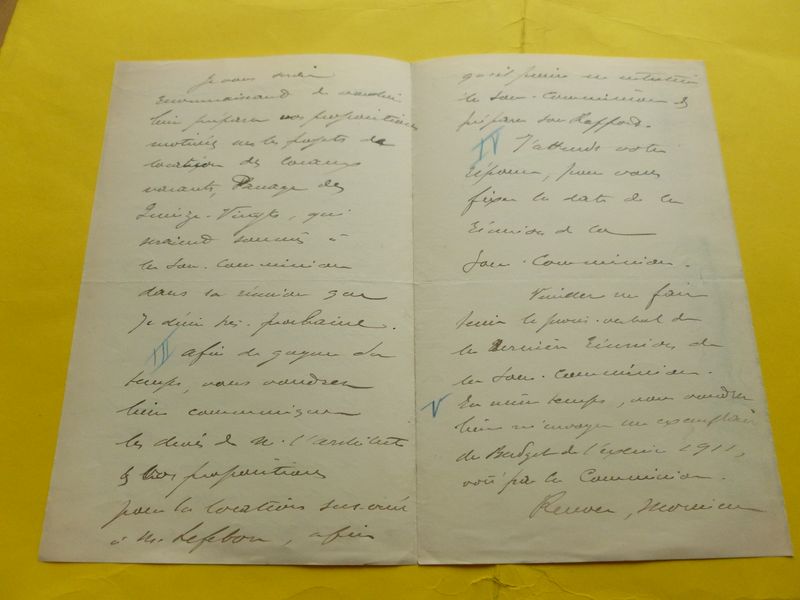 Je vous serai
reconnaissant de vouloir
bien préparer vos propositions
motivées sur les projets de
location des locaux
vacants, Passage des
Quinze-Vingts, qui
seraient soumis à
la Sous-Commission
dans sa réunion que
je désire très prochaine.
III Afin de gagner du
temps, vous voudrez
bien communiquer
les devis de M. l'architecte
& vos propositions
pour la location
à M. Lefebvre, afin
qu'il puisse en entretenir
la Sous-Commission &
préparer son Rapport.
IV J'attends votre
réponse, pour vous
fixer la date de la
Réunion de la
Sous-Commission.
Veuillez me faire
tenir le procès-verbal de
la dernière Réunion de
la Sous-Commission.
V En même temps, vous voudrez
bien m'envoyer un exemplaire
du Budget de l'exercice 1911,
voté par la Commission.
Recevez, Monsieur